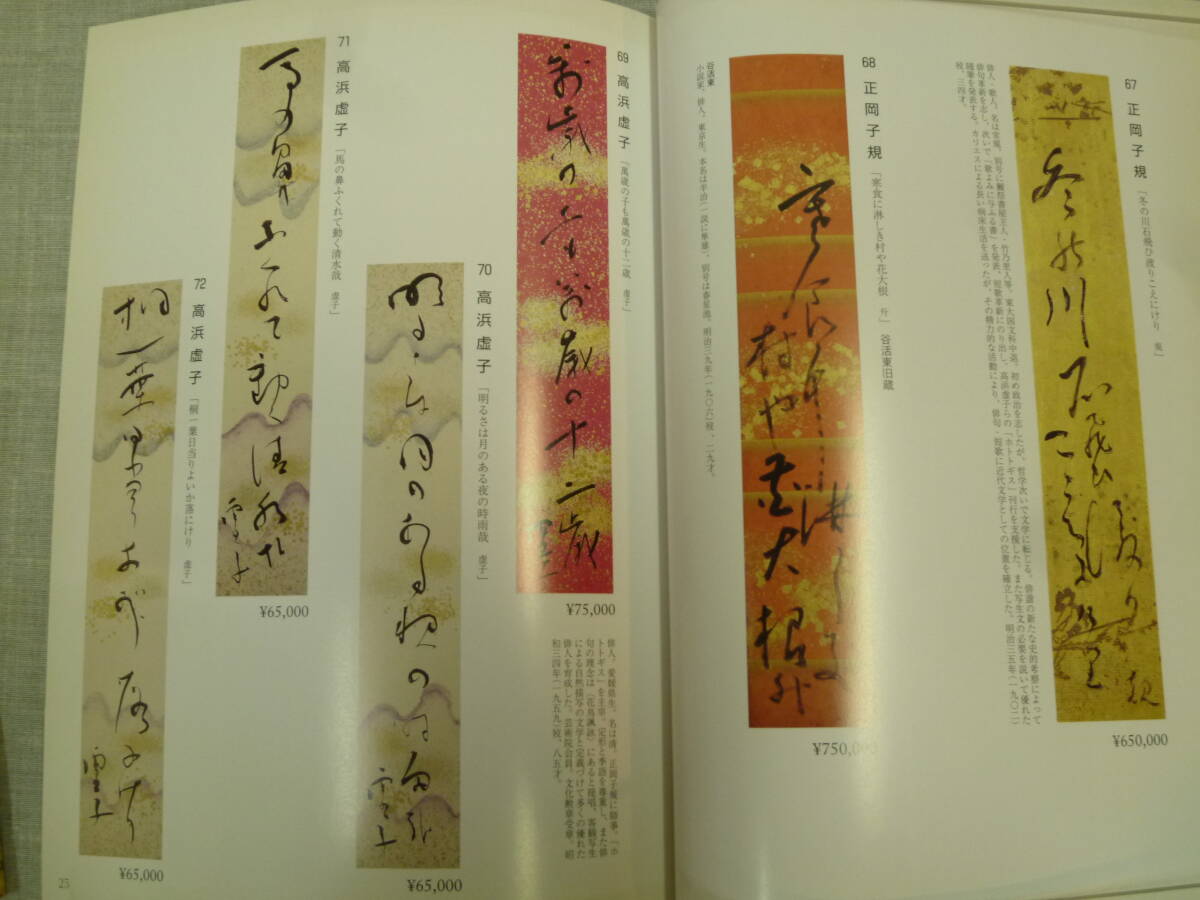 67 正岡子規 「冬の川石飛び渡りこえにけり 規」
俳人・歌人。名は常規。別号に獺祭書屋主人・竹乃里人等。東大国文科中退。初め政治を志したが、哲学次いで文学に転じる。俳諧の新たな史的考察によって
俳句革新を志し、次いで「歌よみに与ふる書」を発表、短歌革新にのり出し、高浜虚子らの「ホトトギス」刊行を支援した。また写生文の必要を説いて優れた
随筆を発表する。カリエスによる長い病床生活を送ったが、その精力的な活動により、俳句・短歌に近代文学としての位置を確立した。明治三五年(一九〇二)
歿、三四才。
¥650,000
68 正岡子規 「寒食に淋しき村や花大根 升」 谷活東旧蔵
谷活東
小説家、俳人。東京生。
別号は春星池。明治三九年(一九〇六)歿、二九才。
¥750,000
69 高浜虚子 「萬歳の子も萬歳の十二歳 虚子」
¥75,000
俳人。愛媛県生。名は清。正岡子規に師事。「ホ
トトギス」を主宰。定形と季語を尊重し、また俳
句の理念は「花鳥諷詠」にあると提唱、客観写生
による自然描写の文学と定義づけて多くの優れた
俳人を育成した。芸術院会員。文化勲章受章。昭
和三四年(一九五九)歿、八五才。
70 高浜虚子 「明るさは月のある夜の時雨哉 虚子」
¥65,000
71 高浜虚子 「馬の鼻ふくれて動く清水哉 虚子」
¥65,000
72 高浜虚子 「桐一葉日当りよいか落にけり 虚子」
¥65,000
25